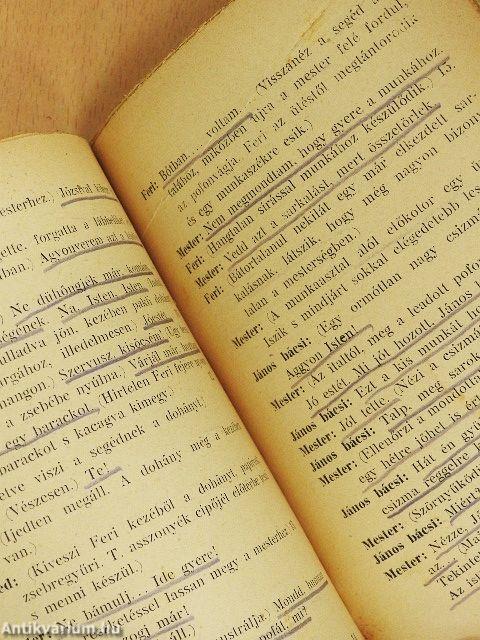 esterhez.) József bátya
gette, forgatta a lábbelit
tban.) Agyonverem azt a
) Ne dühöngjék már, komám
ségének. Na, Isten, Isten.
ulladva jön, kezében pálos
argához, illedelmesen.) Jóestét
hangon.) Szervusz kisöcsém.
a zsebébe nyúlna.) Várjál már
egy barackot. (Hirtelen Feri fejére
barackot s kacagva kimegy.)
etve viszi a segédnek a dohányt
(Vészesen.) Te!
(Ijedten megáll. A dohány még a kezében
van.)
ed: (Kiveszi Feri kezéből a dohányt,
zsebregyűri. T. asszonyék cipőjét előtérbe
s menni készül.)
bámulj... Ide gyere!
téléssel lassan megy a mesterhez.
zog már!
Mondd,
pofál, mi?
(Visszanéz a segéd
Feri: Bóthan... voltam.
találhoz, miközben újra a mester felé fordul,
az pofonvágja. Feri az ütéstől megtántorodik
és egy munkaszékre esik.)
Mester: Nem megmondtam, hogy gyere a munkához.
Feri: (Hangtalan sírással munkához készülődik.)
Mester: Vedd azt a sarkalást, mert összetörlek
Feri: (Bátortalanul nekilát egy már elkezdett sar-
kalásnak, látszik, hogy még nagyon bizony
talan a mesterségben.)
Mester: (A munkaasztal alól előkotor egy
Iszik s mindjárt sokkal elégedettebb les
János bácsi: (Egy ormótlan nagy csizm
Aggyon Isten!
Mester: (Az italtól, meg a leadott pofon
Jó estét. Mi jót hozott, János b
János bácsi: Ezt a kis munkát h
Mester: Jól tette. (Nézi a csizm
János bácsi: Talp, meg sarok
Mester: (Ellenőrzi a mondotta
egy hétre jönel is ér
János bácsi: Hát én gyü
csizma reggelre
Mester: (Szörnyűköd
János bácsi: Miért
Mester: Nézze, J
az... (Ma
Tekintet
Az ist
Antikvárium.hu